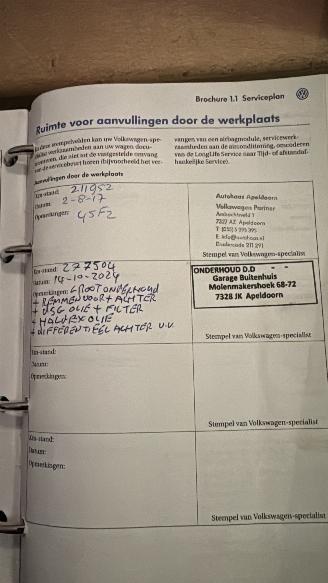 Brochure 1.1 Serviceplan
Ruimte voor aanvullingen door de werkplaats
In deze stempelvelden kan uw Volkswagen-spe-
werkzaamheden aan uw wagen docu-
menteren, die niet tot de vastgestelde omvang
van de servicebeurt horen (bijvoorbeeld het ver-
vangen van een airbagmodule, servicewerk-
zaamheden aan de airconditioning, omcoderen
van de LongLife Service naar Tijd- of afstandaf-
hankelijke Service).
Aanvullingen door de werkplaats
Km-stand: 211952
Datum: 2-8-17
Opmerkingen: 45F2
Autohaus Apeldoorn
Volkswagen Partner
7327 AZ Apeldoorn
Stempel van Volkswagen-specialist
Km-stand: 227504
Datum: 14-10-2024
Opmerkingen: GROOT ONDERHOUD
+ REMMEN VOOR + ACHTER
+ DSG OLIE + FILTER
+ HALDEX OLIE
+ DIFFERENTIEEL ACHTER V.V.
ONDERHOUD D.D - -
Garage Buitenhuis
Molenmakershoek 68-72
7328 JK Apeldoorn
Stempel van Volkswagen-specialist
Km-stand:
Datum:
Opmerkingen:
Stempel van Volkswagen-specialist
Km-stand:
Datum:
Opmerkingen:
Stempel van Volkswagen-specialist